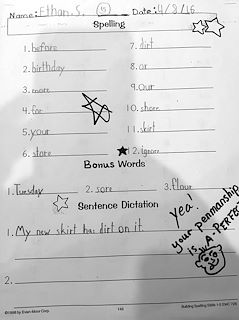 Name: Ethan. S. 15 Date: 4/8/16.
Spelling
1. before 7. dirt
2. birthday 8. or
3. more 9. our
4. for 10. shore
5. your 11. skirt
6. store 12. ignore
Bonus Words
1. Tuesday 2. sore 3. flour
Sentence Dictation
1. My new skirt has dirt on it.
2.
yea!
your penmanship
is A-PERFE
146